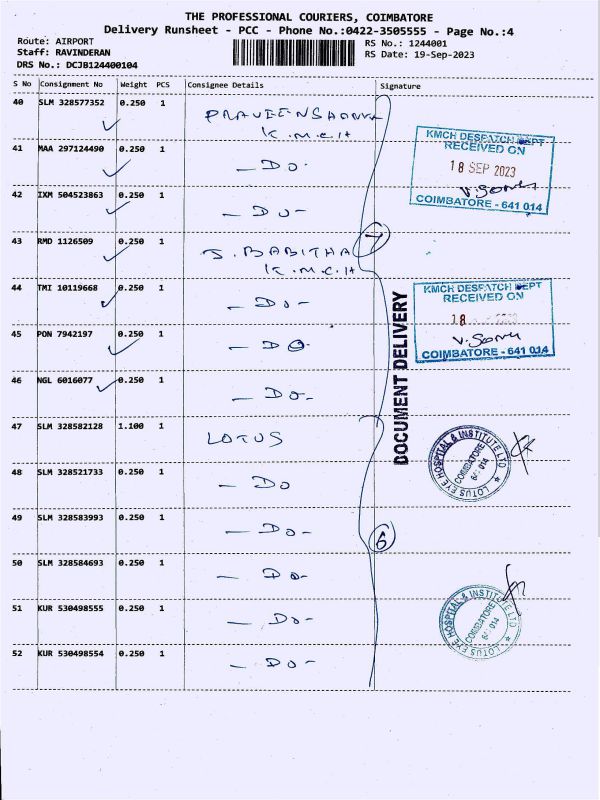 THE PROFESSIONAL COURIERS, COIMBATORE
Delivery Runsheet - PCC - Phone No.:0422-3505555 - Page No.:4
Route: AIRPORT
Staff: RAVINDERAN
DRS No.: DCJB124400104
RS No.: 1244001
RS Date: 19-Sep-2023
S No Consignment No Weight PCS Consignee Details Signature
40 SLM 328577352 0.250 1
K.M.C.H
41 MAA 297124490 0.250 1 - Do -
42 IXM 504523863 0.250 1 - Do -
43 RMD 1126509 0.250 1 S. BABITHA
K.M.C.H
44 TMI 10119668 0.250 1 - Do -
45 PON 7942197 0.250 1 - Do
46 NGL 6016077 0.250 1 - Do -
47 SLM 328582128 1.100 1 LOTUS
48 SLM 328521733 0.250 1 - Do
49 SLM 328583993 0.250 1 - Do -
50 SLM 328584693 0.250 1 - Do -
51 KUR 530498555 0.250 1 - Do -
52 KUR 530498554 0.250 1 - Do -
7
6
KMCH DESPATCH DEPT
RECEIVED ON
18 SEP 2023
COIMBATORE - 641 014
KMCH DESPATCH DEPT
RECEIVED ON
18
COIMBATORE - 641 014
DOCUMENT DELIVERY
LOTUS EYE HOSPITAL & INSTITUTE LTD
COIMBATORE
641 014
LOTUS EYE HOSPITAL & INSTITUTE LTD
COIMBATORE
641 014